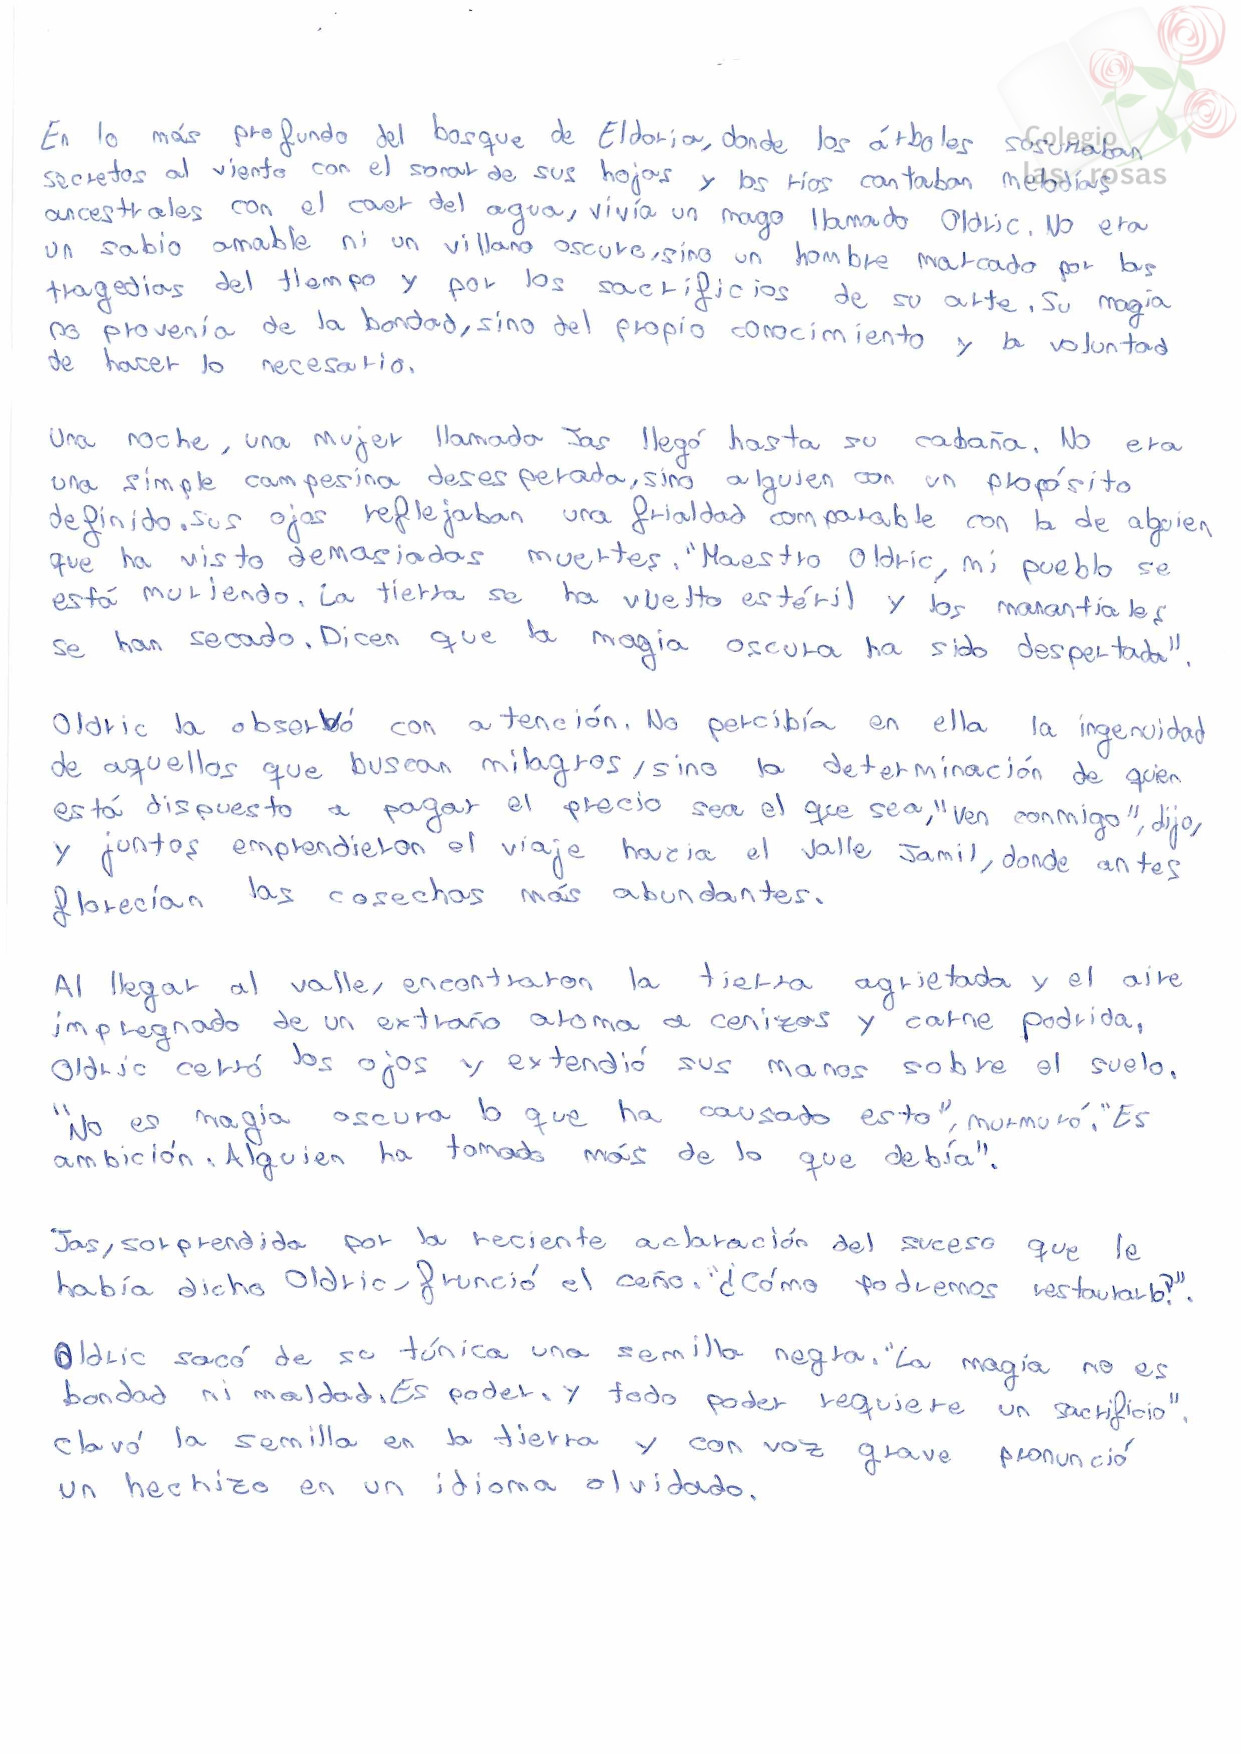 Colegio
las rosas
En lo más profundo del bosque de Eldoria, donde los árboles susurraban
secretos al viento con el sonar de sus hojas y los ríos cantaban melodías
ancestrales con el caer del agua, vivía un mago llamado Oldric. No era
un sabio amable ni un villano oscuro, sino un hombre marcado por las
tragedias del tiempo y por los sacrificios de su arte. Su magia
no provenía de la bondad, sino del propio conocimiento y la voluntad
de hacer lo necesario.
Una noche, una mujer llamada Jas llegó hasta su cabaña. No era
una simple campesina desesperada, sino alguien con un propósito
definido. Sus ojos reflejaban una frialdad comparable con la de alguien
que ha visto demasiadas muertes. "Maestro Oldric, mi pueblo se
está muriendo. La tierra se ha vuelto estéril y los manantiales
se han secado. Dicen que la magia oscura ha sido despertada".
Oldric la observó con atención. No percibía en ella la ingenuidad
de aquellos que buscan milagros, sino la determinación de quien
está dispuesto a pagar el precio sea el que sea, "Ven conmigo", dijo,
y juntos emprendieron el viaje hacia el valle Jamil, donde antes
florecían las cosechas más abundantes.
Al llegar al valle, encontraron la tierra agrietada y el aire
impregnado de un extraño aroma a cenizas y carne podrida.
Oldric cerró los ojos y extendió sus manos sobre el suelo.
"No es magia oscura lo que ha causado esto", murmuró. "Es
ambición. Alguien ha tomado más de lo que debía".
Jas, sorprendida por la reciente aclaración del suceso que le
había dicho Oldric, frunció el ceño. "¿Cómo podremos restaurarlo?".
Oldric sacó de su túnica una semilla negra. "La magia no es
bondad ni maldad. Es poder. Y todo poder requiere un sacrificio".
clavó la semilla en la tierra y con voz grave pronunció
un hechizo en un idioma olvidado.